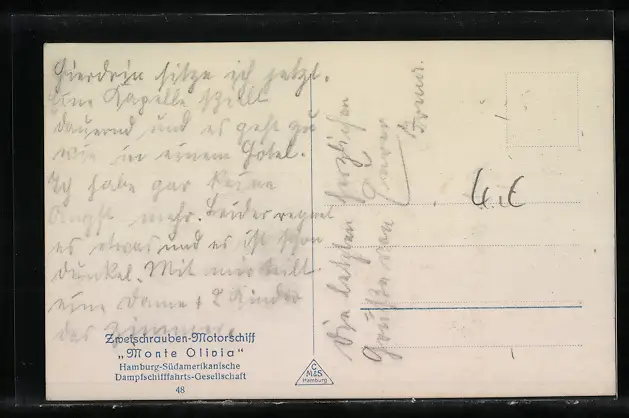 Hierdrin sitze ich jetzt.
Eine Kapelle spielt
dauernd und es geht zu
wie in einem Hotel.
Ich habe gar keine
Angst mehr. Leider regnet
es etwas und es ist schon
dunkel. Mit mir teilt
eine Dame + 2 Kinder
das Zimmer.
Die letzten herzlichen
Grüße von Eurer
Zweischrauben-Motorschiff
„Monte Olivia“
Hamburg-Südamerikanische
Dampfschifffahrts-Gesellschaft
48
C
M&S
Hamburg